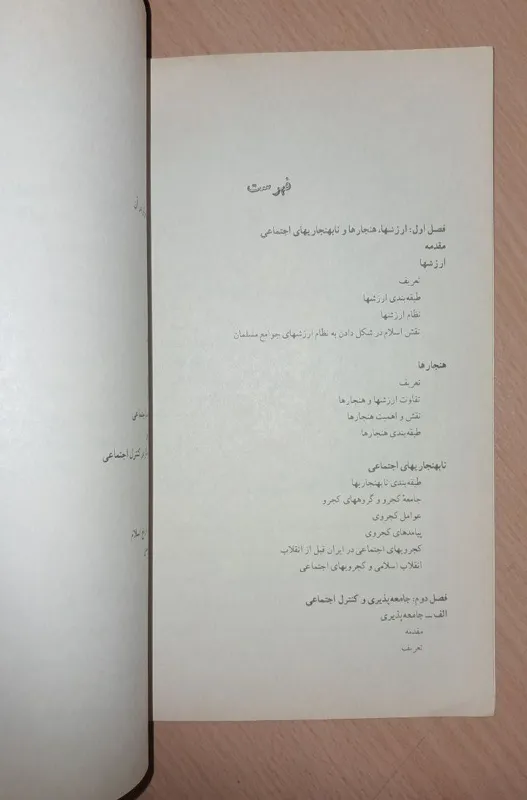 فهرست
فصل اول: ارزشها، هنجارها و نابهنجاریهای اجتماعی
مقدمه
ارزشها
تعریف
طبقه‌بندی ارزشها
نظام ارزشها
نقش اسلام در شکل دادن به نظام ارزشهای جوامع مسلمان
هنجارها
تعریف
تفاوت ارزشها و هنجارها
نقش و اهمیت هنجارها
طبقه‌بندی هنجارها
نابهنجاریهای اجتماعی
طبقه‌بندی نابهنجاریها
جامعهٔ کجرو و گروههای کجرو
عوامل کجروی
پیامدهای کجروی
کجرویهای اجتماعی در ایران قبل از انقلاب
انقلاب اسلامی و کجرویهای اجتماعی
فصل دوم: جامعه‌پذیری و کنترل اجتماعی
الف ــ جامعه‌پذیری
مقدمه
تعریف
کنترل اجتماعی
اسلام